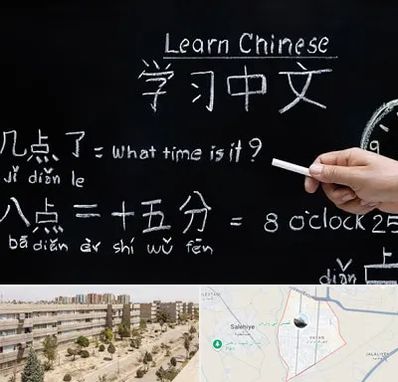 Learn Chinese
学习中文
几点了 = What time is it?
Jǐ diǎn le
八点二十五分 = 8 o'clock 25
bā diǎn èr shí wǔ fēn
9
上
diǎn
Salehiye